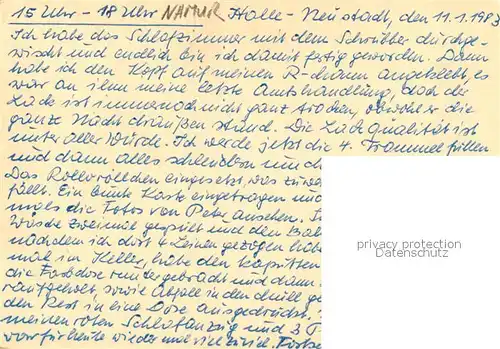 15 Uhr – 18 Uhr NAMUR Halle – Neustadt, den 11.1.1983
Ich habe das Schlafzimmer mit dem Schrubber durchge-
wischt und endlich bin ich damit fertig geworden. Dann
habe ich den Kopf auf meinen angeklebt, es
war an ihm meine letzte Amtshandlung, doch der
Lack ist immer noch nicht ganz trocken, obwohl er die
ganze Nacht draußen stand. Die Lackqualität ist
unter aller Würde. Ich werde jetzt die 4. Trommel füllen
und dann alles schleudern
Das eingesetzt, was
fällt. Ein bunte Karte eingetragen und
mals die Fotos von Peter ansehen.
Wäsche zweimal gespült und den
nachdem ich dort 4 Leinen gezogen habe
mal im Keller, habe den kaputten
die Farbdose runtergebracht und dann
raufgeholt, sowie Abfall in den Müll
den Rest in eine Dose ausgedrückt.
meinen roten Schlafanzug und 3
vor für heute wieder mal viel
privacy protection
Datenschutz